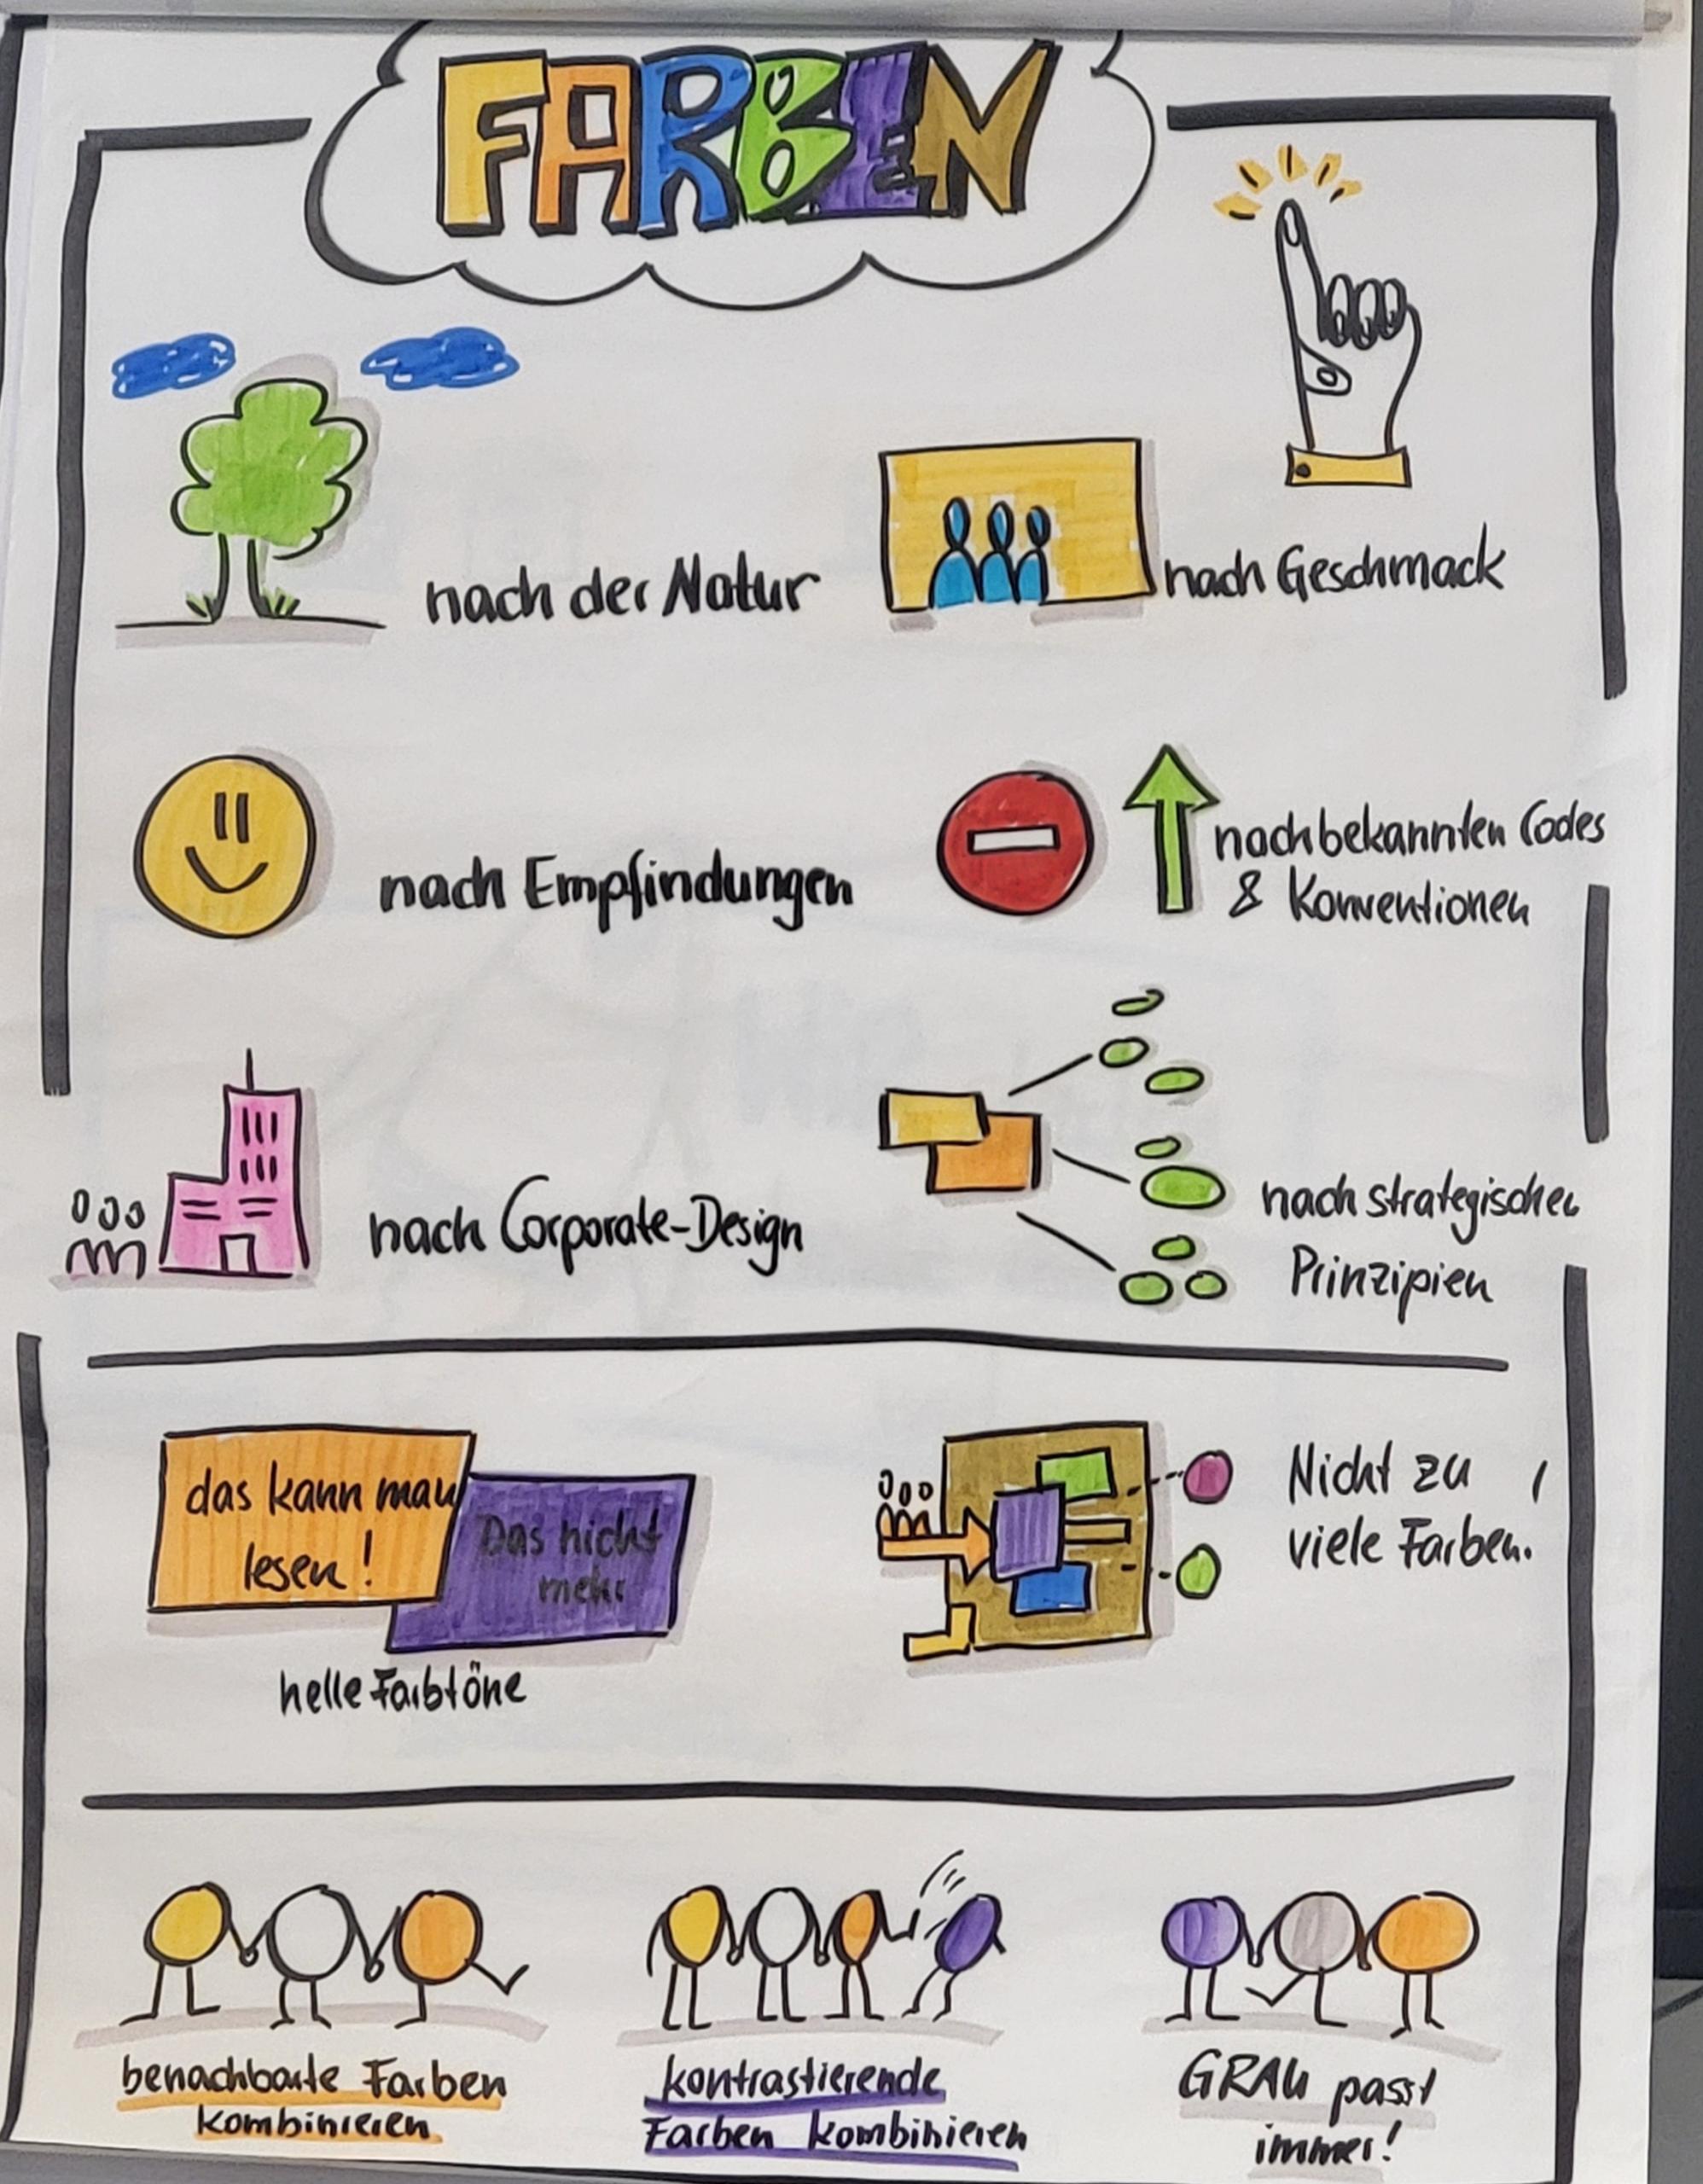 FARBEN
nach der Natur
nach Geschmack
nach Empfindungen
nach bekannten Codes
& Konventionen
nach Corporate-Design
nach strategischen
Prinzipien
das kann man
lesen!
Das nicht
mehr
helle Farbtöne
Nicht zu
viele Farben.
benachbarte Farben
kombinieren
kontrastierende
Farben kombinieren
GRAU passt
immer!